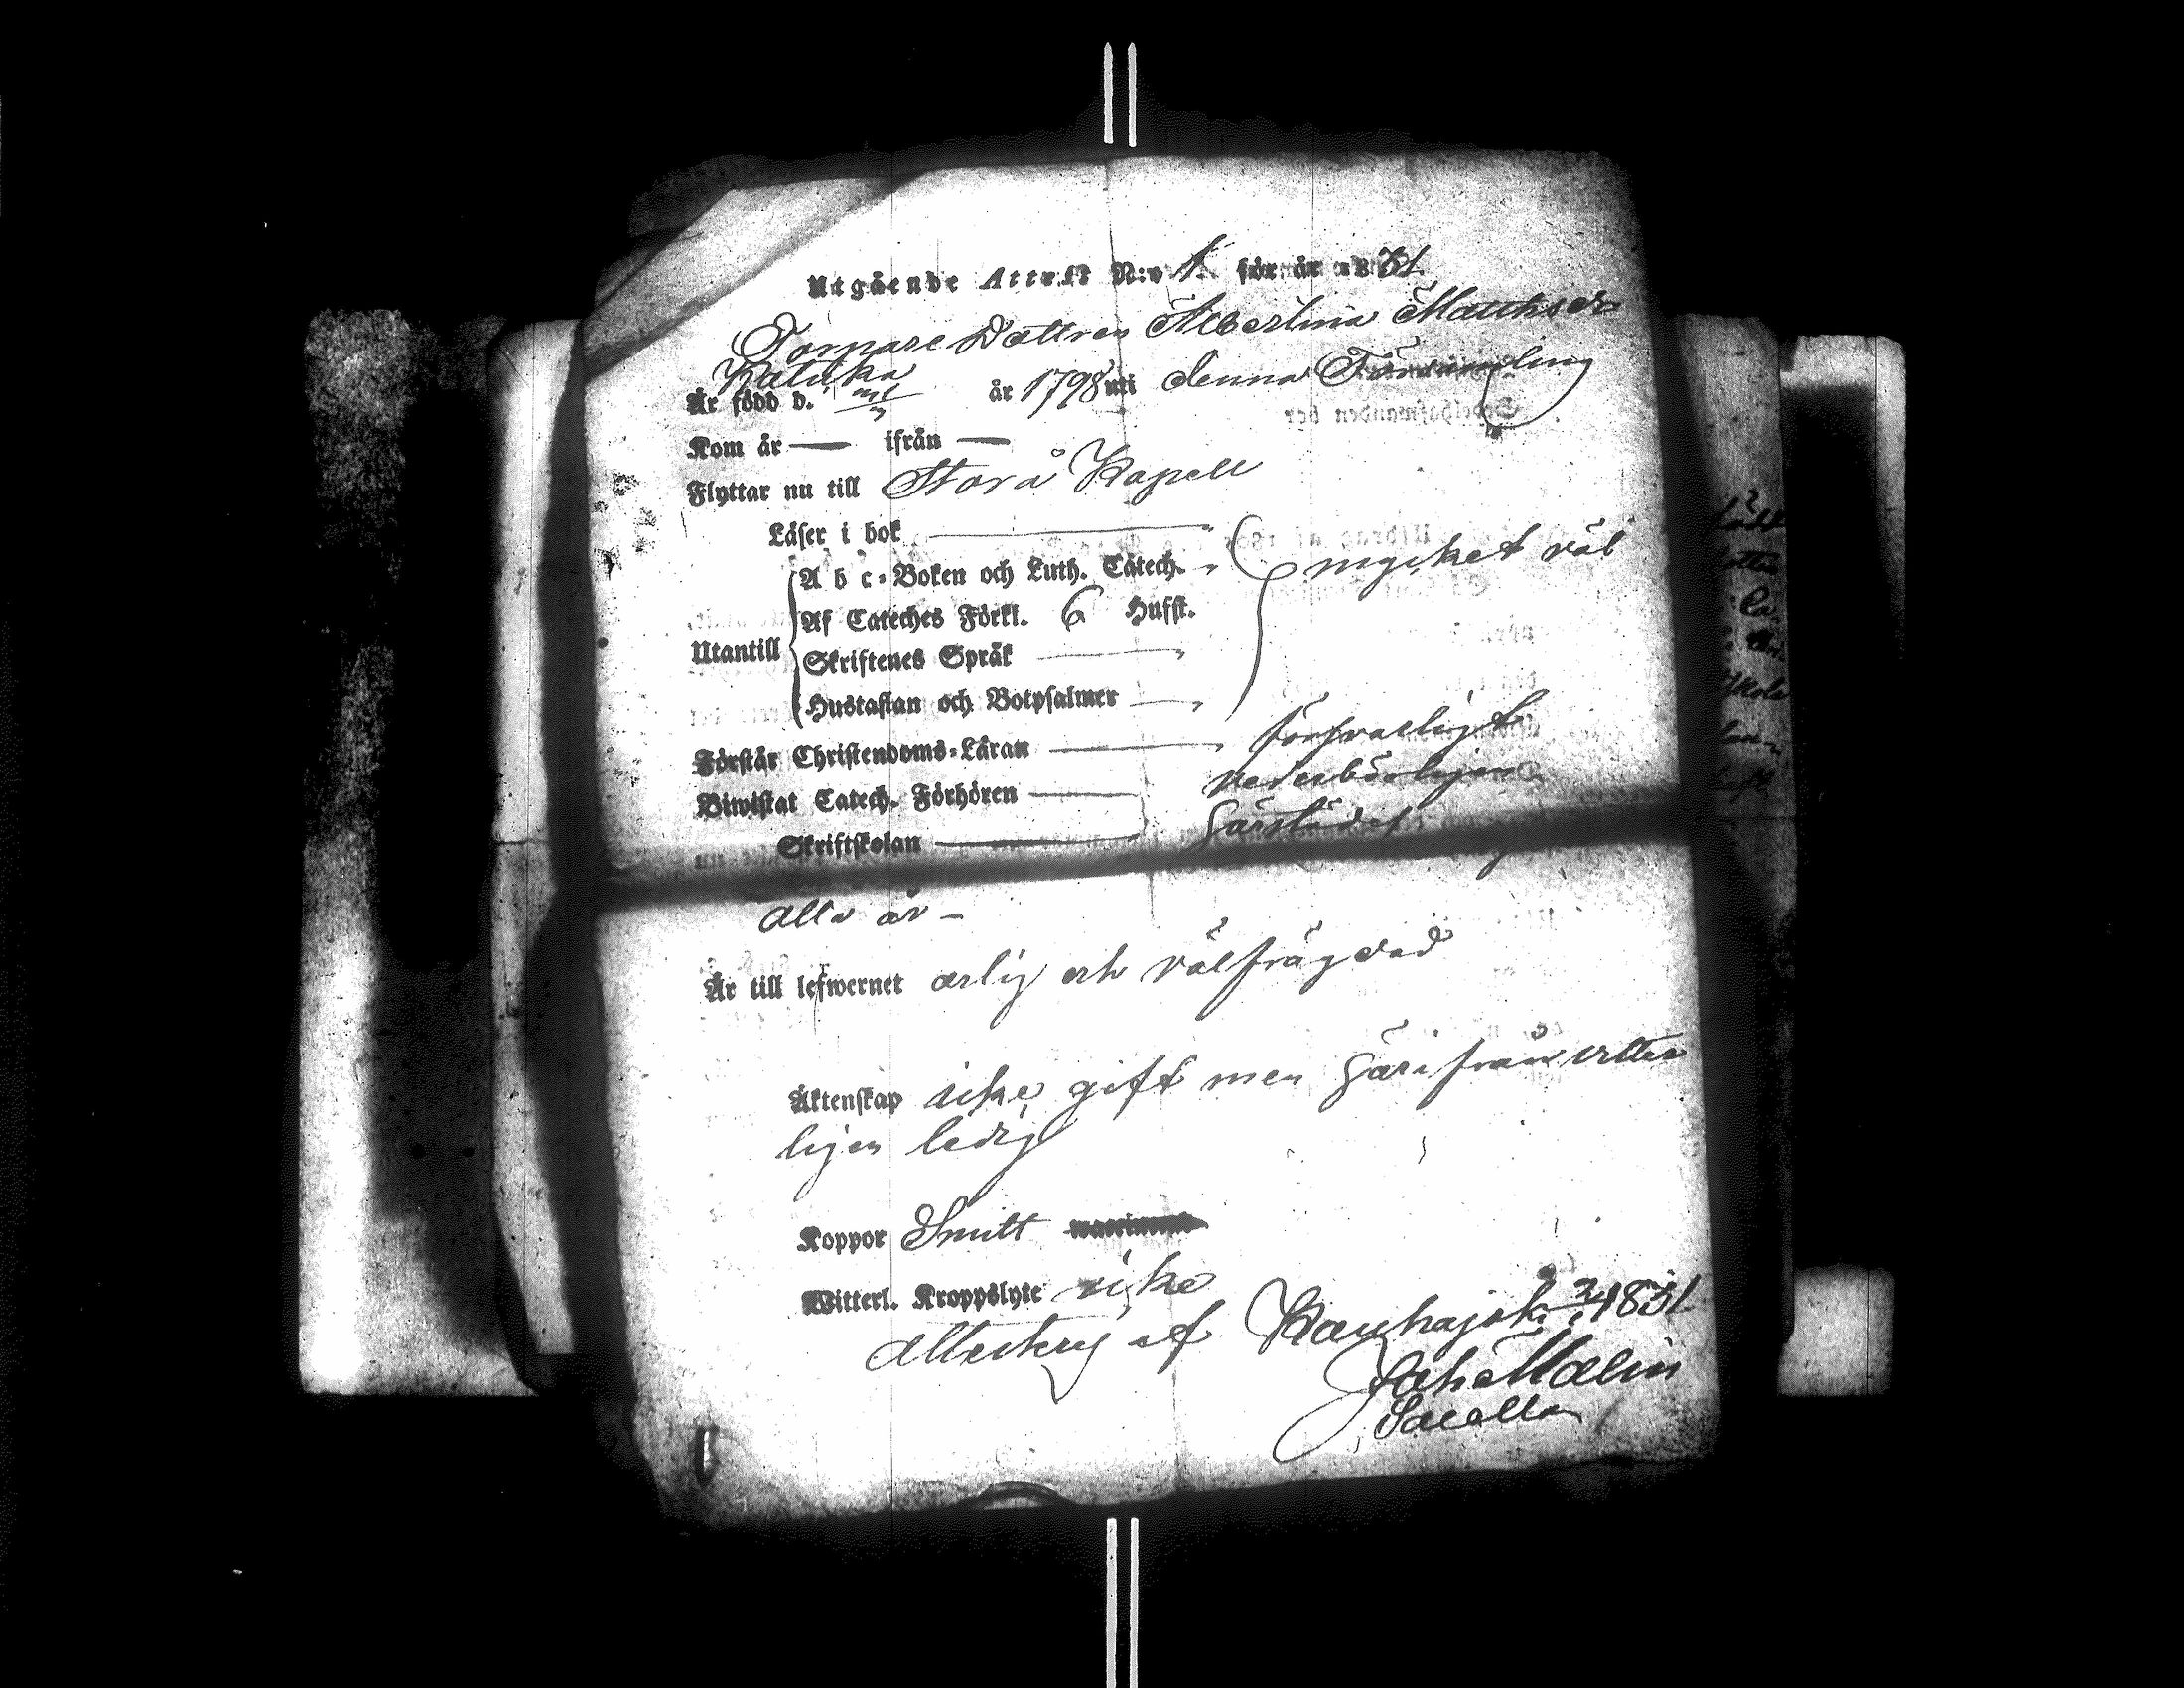 Utgående Attest N:o 1. för år 1831.
Torpare Dottren Albertina Matthsdr
Katuka
Är född d. år 1798 uti denna Församling
Kom år — ifrån —
Flyttar nu till Storå Kapell
Läser i bok
A b c-Boken och Luth. Catech. mycket väl
Af Cateches Förkl. 6 Husst.
Utantill
Skriftenes Språk
Hustaflan och Botpsalmer
Förstår Christendoms-Läran försvarligt
Biwistat Catech. Förhören vederbörligen
Skriftskolan härstädes
alla år —
Är till lefwernet ärlig och välfrägdad
Äktenskap icke gift men härifrån vitter
ligen ledig
Koppor Smitt
Witterl. Kroppslyte icke
attesterg af Kauhajoki 1831
Joh. Malin
Sacellan